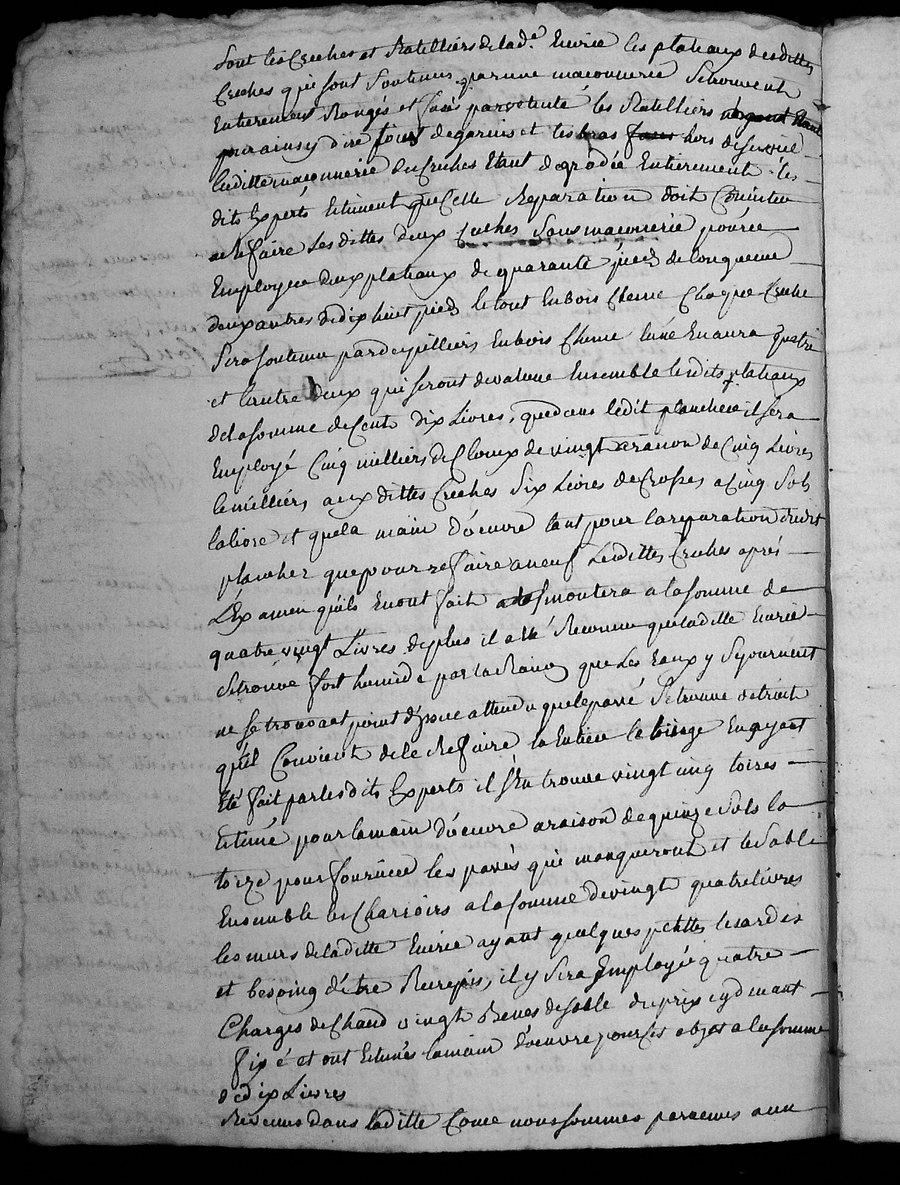 sont les Creches et Ratelliers de lad.e Ecurie les plateaux desdittes
Creches qui sont soutenus par une maconnerie se trouvent
Entierement Rongés et par vetusté les Ratelliers
pour ainsy dire tout degarnis et les bras hors de service
laditte maconnerie des Creches Etant degradée Entierement les
dits Experts Estiment que Cette Reparation doit Consister
a Refaire lesdittes deux Creches sans maconnerie, pour
Employer deux plateaux de quarante pieds de longueur
deux autres de dix huit pieds le tout En bois Chene Chaque Creche
sera soutenue par des pilliers En bois Chene lune En aura quatre
et l'autre deux qui seront de valeur Ensemble lesdits plateaux
de la somme de Cent dix Livres, que dans ledit plancher il sera
Employé Cinq milliers de Cloux de vingt a raison de Cinq Livres
le millier, aux dittes Creches six Livres de Crosses a Cinq sols
la livre et que la main d'oeuvre tant pour la reparation dudit
plancher que pour refaire a neuf lesdittes Creches après
L'Examen qu'ils En ont fait montera a la somme de
quatre vingt Livres, de plus il a été Reconnu que laditte Ecurie
se trouve fort humide par la Raison que les Eaux y sejournent
ne se trouvant point d'issue attendu que le pavé se trouve detruit
qu'il Convient de le Refaire En Entier le toisage En ayant
Eté fait par lesdits Experts il s'En trouve vingt cinq toises
Estimé pour la main d'oeuvre a raison de quinze sols la
toize pour fournir les pavés qui manqueront et le sable
Ensemble les Charrois a la somme de vingt quatre livres
les murs de laditte Ecurie ayant quelques petittes lesardes
et besoing d'être Recrepis, il y sera Employé quatre
Charges de Chaud vingt Benes de sable du prix cydevant
fixé et ont Estimés la main d'oeuvre pour cet objet a la somme
de dix Livres
Revenus dans laditte Cour nous sommes parvenus aux